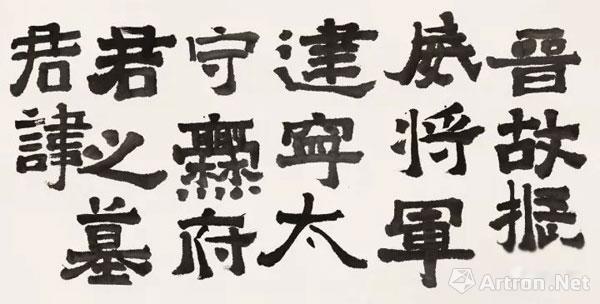 晋故振
威将軍
建寧太
守爨府
君之墓
君諱
Artron.Net